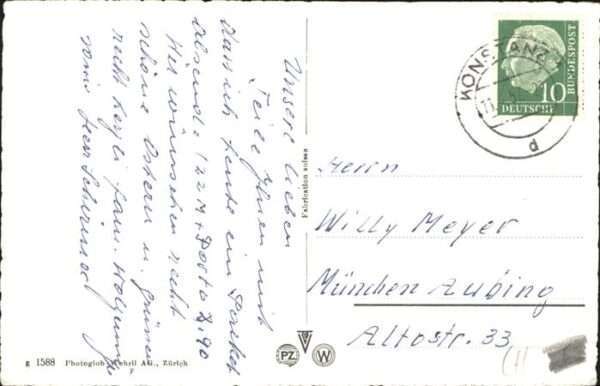 Unsere lieben
Teile Ihnen mit
dass ich heute ein Packet
absende 122 M + Porto 2.90
Wir wünschen recht
schöne Ostern u. Grüsse
recht herzl. Fam.
sowie Herr
KONSTANZ
d
10
DEUTSCHE
BUNDESPOST
Herrn
Willy Meyer
München Aubing
Altostr. 33
Fabrication suisse
PZ
W
g 1588 Photoglob-Wehrli AG., Zürich
F
CH